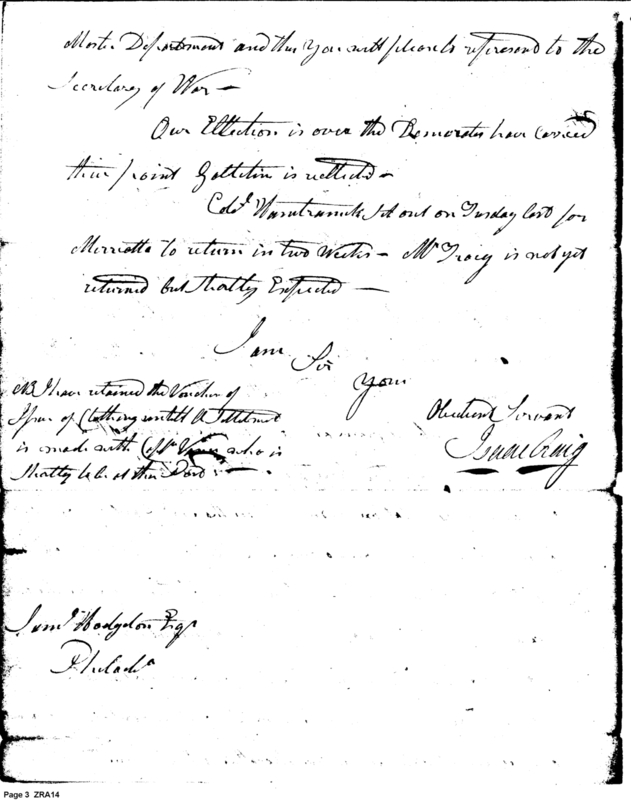 Master Department and this you will please to represent to the
Secretary of War —
Our Ellection is over the Democrates have carried
their point Gallatin is
Colol Hamtramck set out on Tusday last for
Merrietta to return in two weeks — Mr Tracy is not yet
returned but Shortly Expected —
I am Sir
your
Obedient Servant
Isaac Craig
NB I have retained the Voucher of
Issue of Clothing untill a Settelment
is made with Capt who is
Shortly to be at this
Saml Hodgdon Esqr
Philada
Page 3 ZRA14